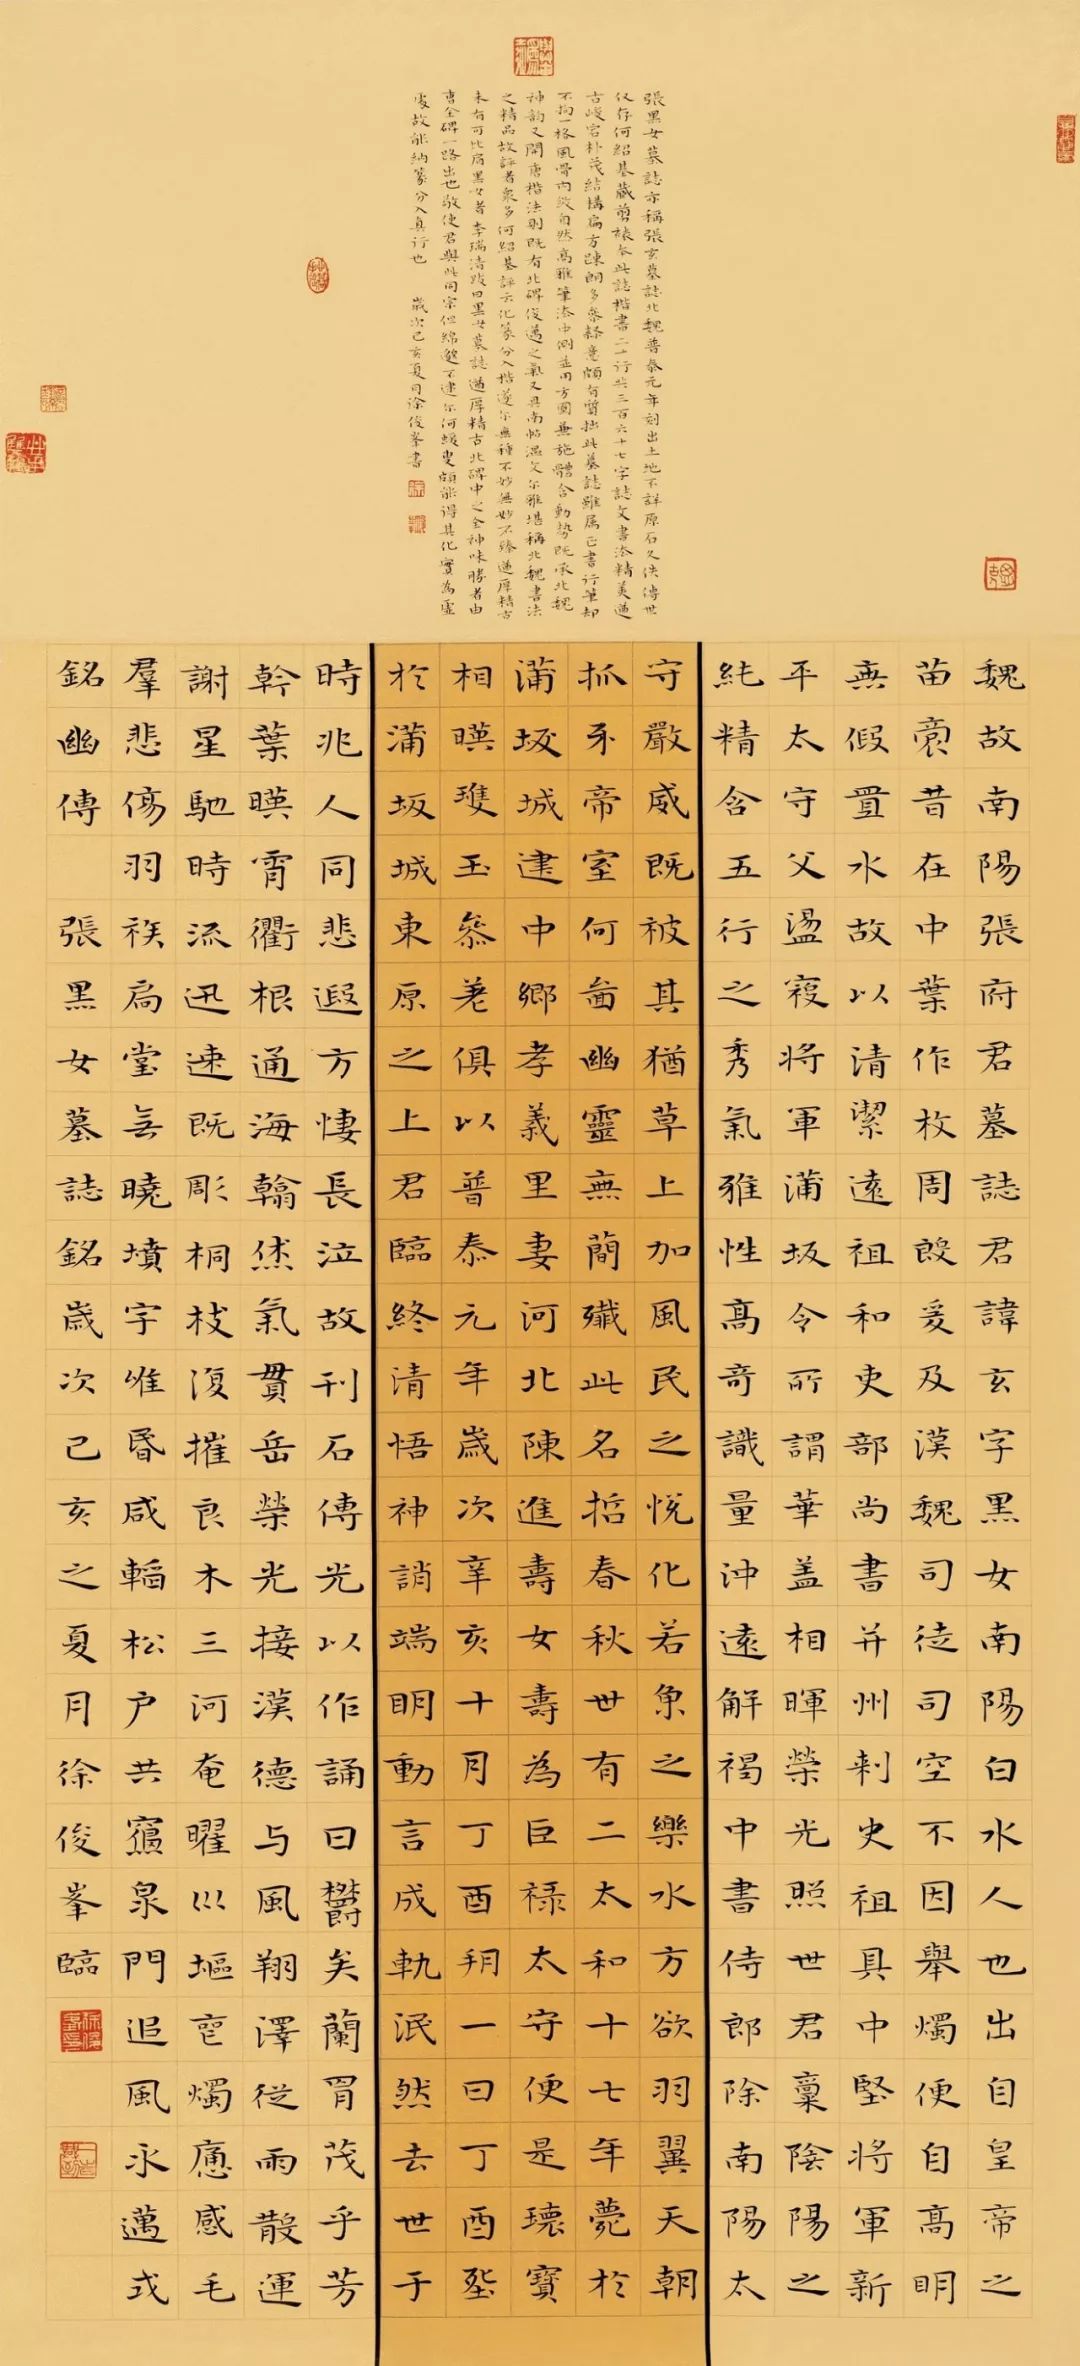 張黑女墓誌亦稱張玄墓誌北魏普泰元年刻出土地不詳原石久佚傳世
仅存何紹基藏剪裱本此誌楷書二十行共三百六十七字誌文書法精美遒
古峻宕朴茂結構扁方疎朗多參隸意頗有質拙此墓誌雖属正書行筆却
不拘一格風骨内斂自然高雅筆法中側並用方圓兼施體含動勢既承北魏
神韵又開唐楷法則既有北碑俊邁之氣又具南帖温文尔雅堪稱北魏書法
之精品故評者衆多何紹基評云化篆分入楷遂尔無種不妙無妙不臻遒厚精古
未有可比肩黑女者李瑞清跋曰黑女墓誌遒厚精古北碑中之全神味勝者由
曹全碑一路出也敬使君與此同宗但綿邈不逮尔何蝯叟頗能得其化實為虛
處故能納篆分入真行也 歲次己亥夏月徐俊峯書
魏故南陽張府君墓誌君諱玄字黑女南陽白水人也出自皇帝之
苗裔昔在中葉作牧周殷爰及漢魏司徒司空不因舉燭便自高明
無假置水故以清潔遠祖和吏部尚書并州刺史祖具中堅將軍新
平太守父盪寇將軍蒲坂令所謂華盖相暉榮光照世君稟陰陽之
純精含五行之秀氣雅性高奇識量沖遠解褐中書侍郎除南陽太
守嚴威既被其猶草上加風民之悅化若魚之樂水方欲羽翼天朝
抓牙帝室何啚幽靈無簡殲此名哲春秋世有二太和十七年薨於
蒲坂城建中鄉孝義里妻河北陳進壽女壽為巨祿太守便是瓌寶
相暎瓊玉參差俱以普泰元年歲次辛亥十月丁酉朔一日丁酉塟
於蒲坂城東原之上君臨終清悟神誚端明動言成軌泯然去世于
時兆人同悲遐方悽長泣故刊石傳光以作誦曰欝矣蘭胄茂乎芳
幹葉暎霄衢根通海翰烋氣貫岳榮光接漢德与風翔澤從雨散運
謝星馳時流迅速既彫桐枝復摧良木三河奄曜巛塸燭感毛
羣悲傷羽族扃堂無曉墳宇唯昏咸輴松户共寢泉門追風永邁式
銘幽傳 張黑女墓誌銘歲次己亥之夏月徐俊峯臨